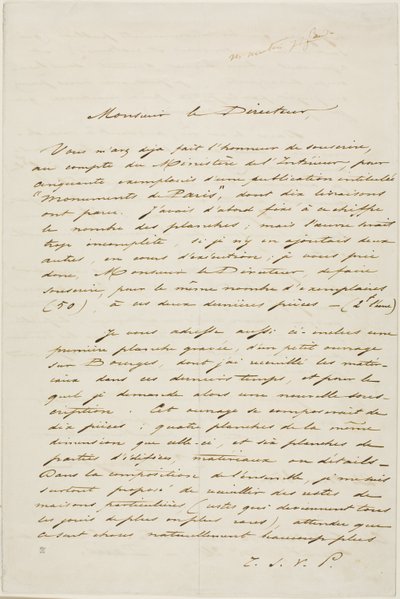 Monsieur le Directeur,
Vous m'avez déja fait l'honneur de souscrire,
au compte du Ministère de l'Intérieur, pour
cinquante exemplaires d'une publication intitulée
"Monuments de Paris," dont dix livraisons
ont paru. J'avais d'abord fixé à ce chiffre
le nombre des planches; mais l'œuvre serait
trop incomplète, si je n'y en ajoutais deux
autres, en cours d'exécution; je vous prie
donc, Monsieur le Directeur, de faire
souscrire, pour le même nombre d'exemplaires
(50), à ces deux dernières pièces —
Je vous adresse aussi ci-inclus une
première planche gravée, d'un petit ouvrage
sur Bourges, dont j'ai recueilli les maté-
riaux dans ces derniers temps, et pour le
quel je demande alors une nouvelle sous-
cription. Cet ouvrage se composerait de
dix pièces: quatre planches de la même
dimension que celle-ci, et six planches de
parties d'édifices, matériaux ou détails —
Dans la composition de l'ensemble, je me suis
surtout proposé de recueillir des restes de
maisons particulières (restes qui deviennent tous
les jours de plus en plus rares), attendu que
ce sont choses naturellement beaucoup plus
T. S. V. P.